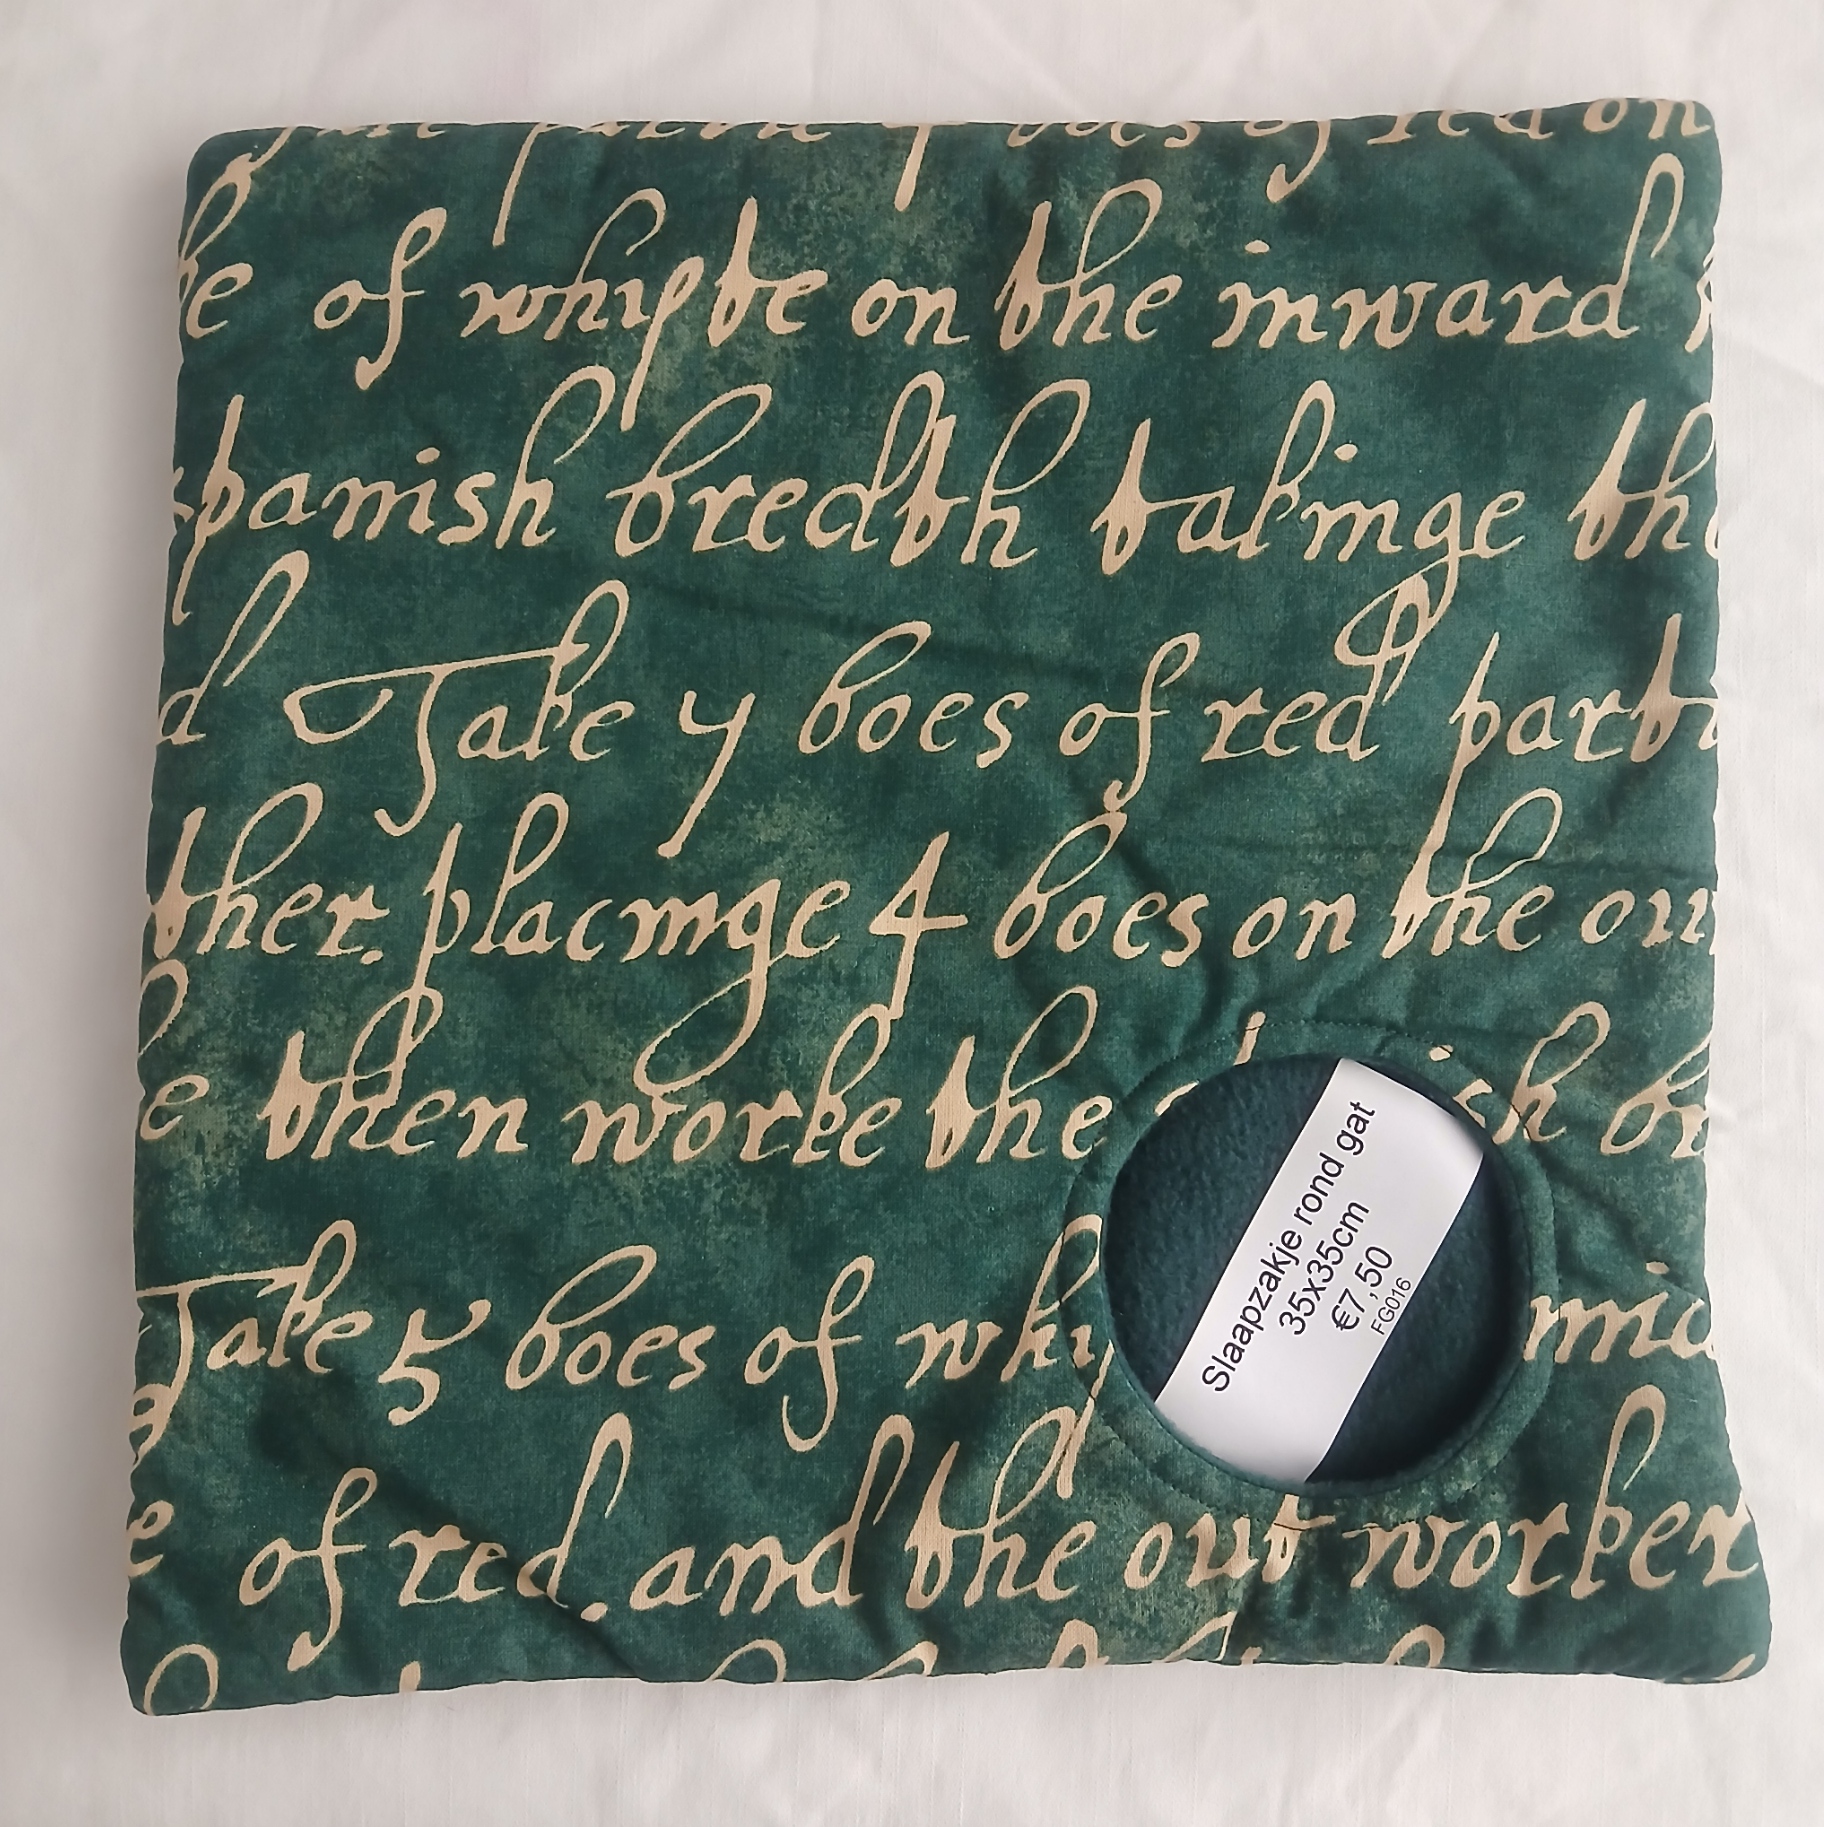 of red on
of whyte on the inward
spanish bredth takinge the
Take 7 boes of red
ther. placinge 4 boes on the
then worke the
Take 5 boes of
of red. and the out worker
Slaapzakje rond gat
35x35cm
€7,50
FG016